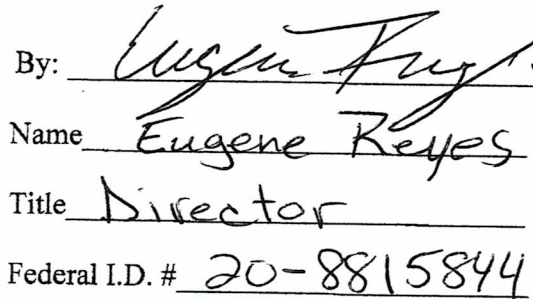 By: Eugene Reyes
Name Eugene Reyes
Title Director
Federal I.D. # 20-8815844